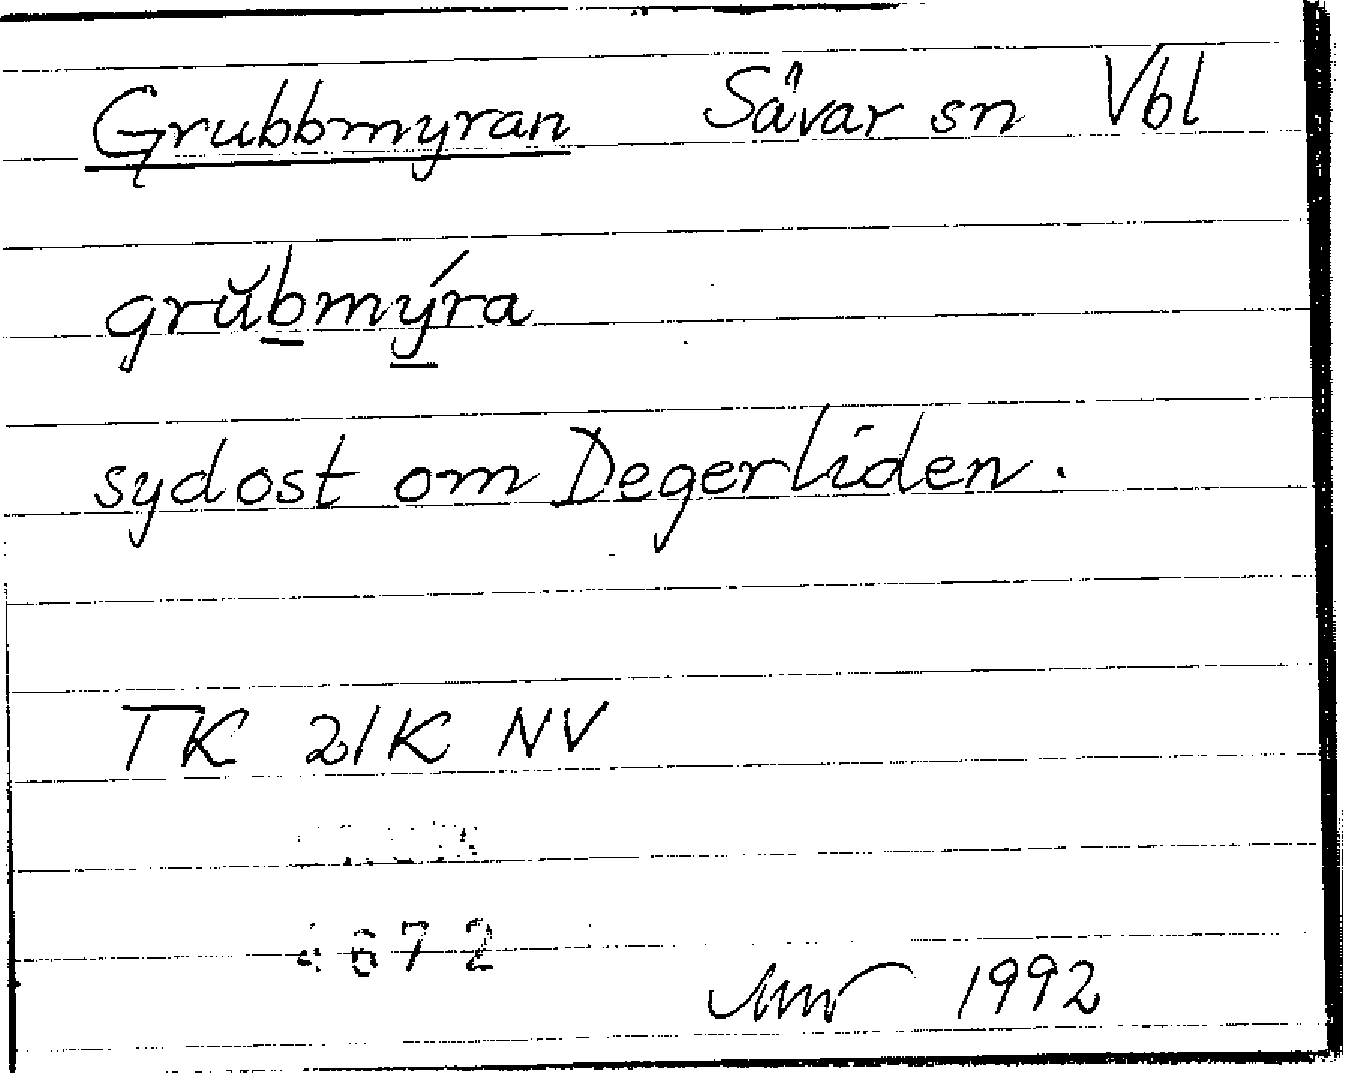 Grubbmyran Sävar sn Vbl
grŭbmýra
sydost om Degerliden.
TK 21K NV
1992